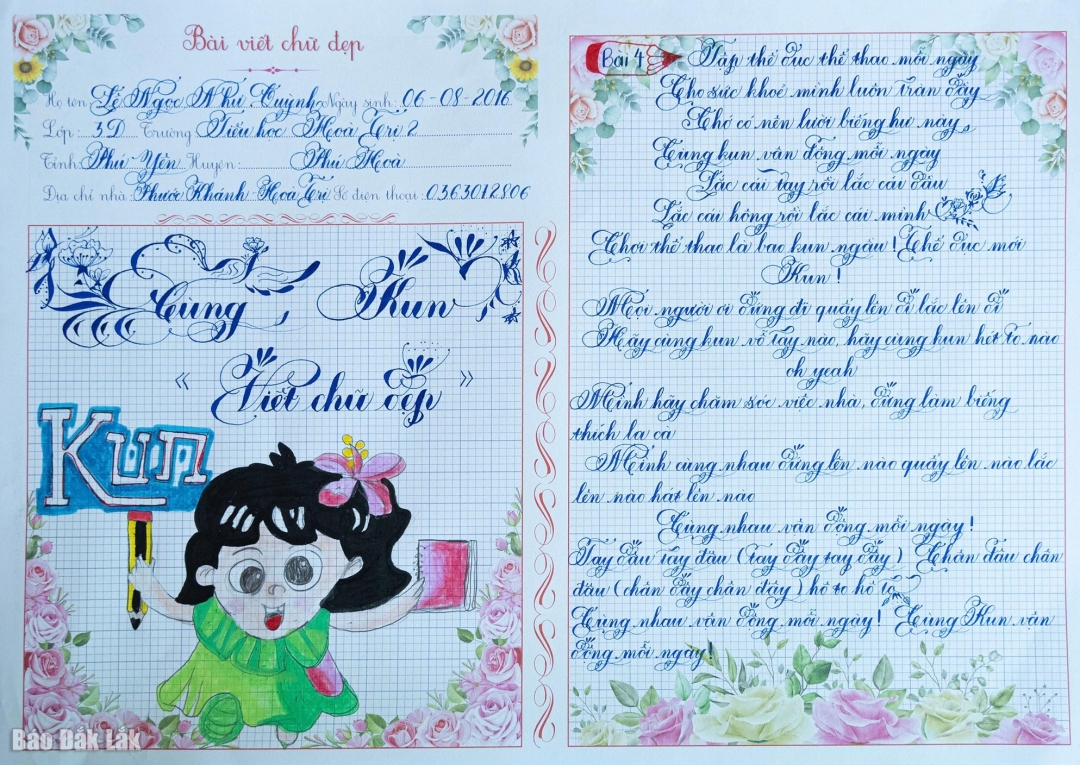 Bài viết chữ đẹp
Họ tên: Lê Ngọc Như Quỳnh Ngày sinh: 06-08-2016
Lớp: 3D Trường Tiểu học Hoà Trị 2
Tỉnh: Phú Yên Huyện: Phú Hoà
Địa chỉ nhà: Phước Khánh Hoà Trị Số điện thoại: 0363012806
Cùng Kun
« Viết chữ đẹp »
Kun
Bài 4
Tập thể dục thể thao mỗi ngày
Cho sức khoẻ mình luôn tràn đầy
Chớ có nên lười biếng hư này
Cùng kun vận động mỗi ngày
Lắc cái tay rồi lắc cái đầu
Lắc cái hông rồi lắc cái mình
Chơi thể thao là bao kun ngầu! Thể dục mới
Kun!
Mọi người ơi đừng đi quẩy lên đi lắc lên đi
Hãy cùng kun vỗ tay nào, hãy cùng kun hét to nào
oh yeah
Mình hãy chăm sóc việc nhà, đừng làm biếng
thích la cà
Mình cùng nhau đứng lên nào quẩy lên nào lắc
lên nào hát lên nào
Cùng nhau vận động mỗi ngày!
Tay đâu tay đâu (tay đây tay đây) Chân đâu chân
đâu (chân đây chân đây) hô to hô to
Cùng nhau vận động mỗi ngày! Cùng Kun vận
động mỗi ngày!
Báo Đắk Lắk